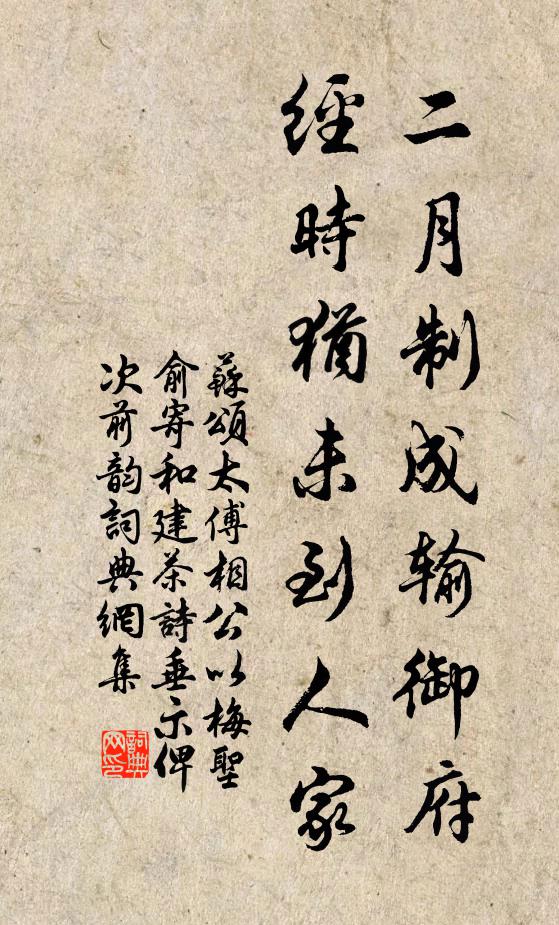 二月制成输御府
經時猶未到人家
蘇頌太傅相公以梅聖
俞寄和建茶詩垂示俾
次前韵詞典網集
詞典网印